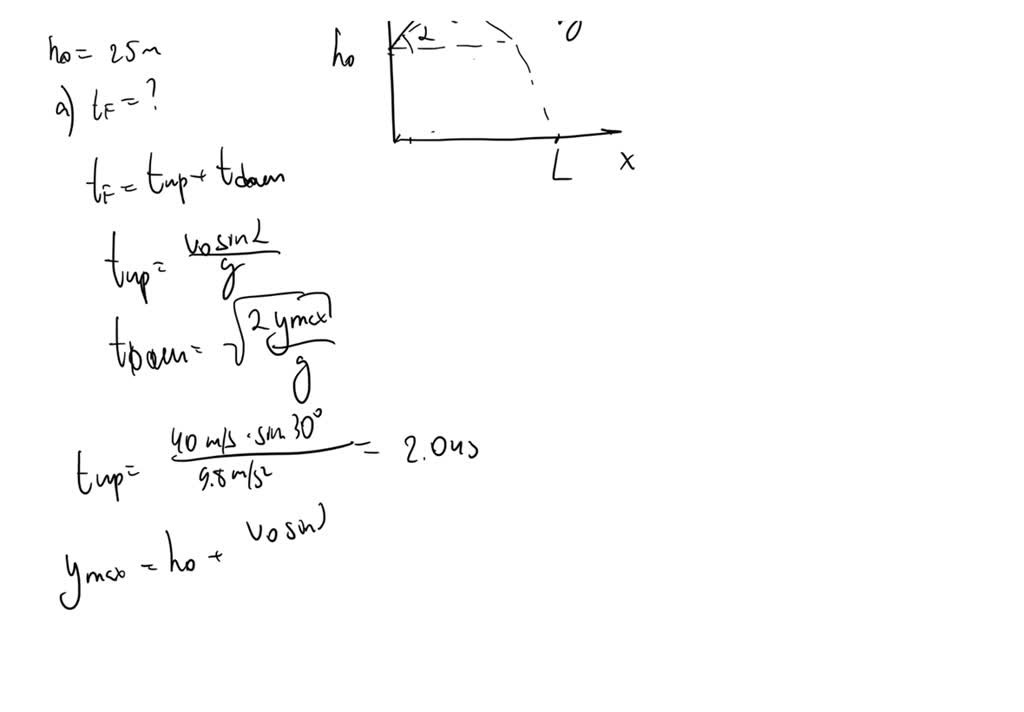 h₀ = 25m
h₀
α
a) t_F = ?
L
x
t_F = t_up + t_down
t_up = v₀ sin α / g
t_down = √(2 y_max / g)
t_up = 40 m/s · sin 30° / 9.8 m/s² = 2.04s
y_max = h₀ + v₀ sin